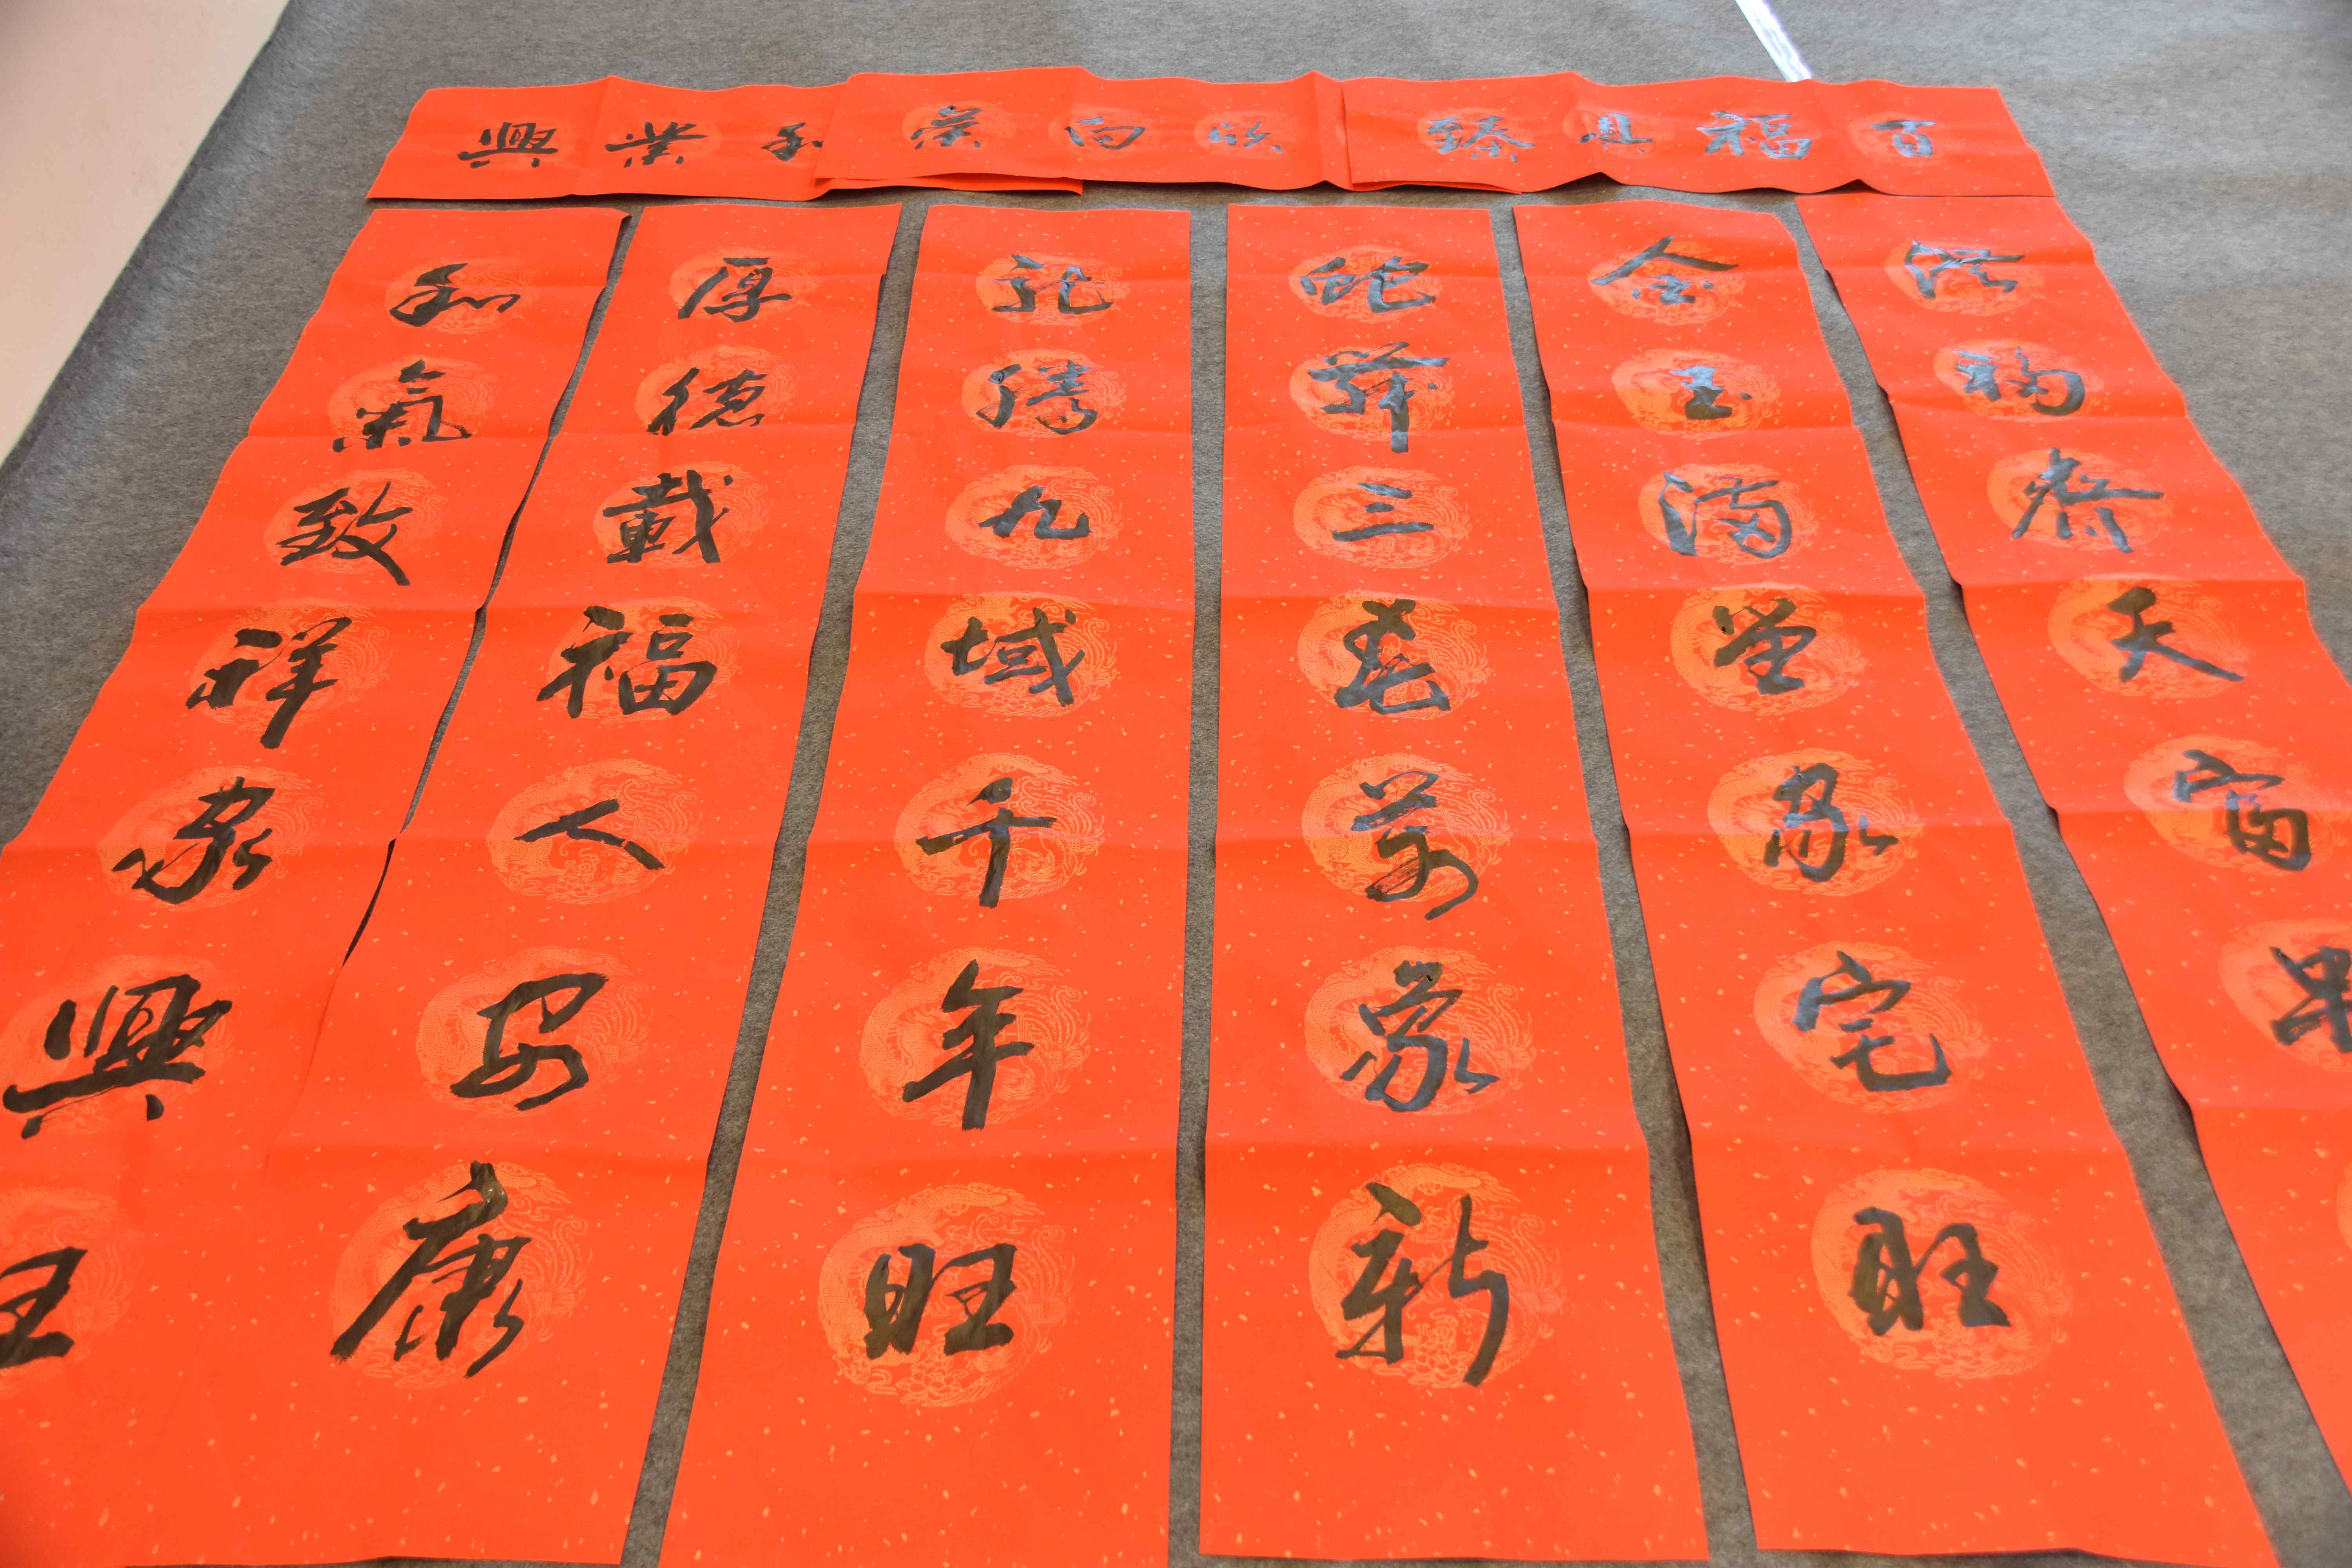 百福具臻
欣向榮
和業興
洪福齊天富
金玉滿堂家宅旺
蛇舞三春萬象新
龍騰九域千年旺
厚德載福人安康
和氣致祥家興旺